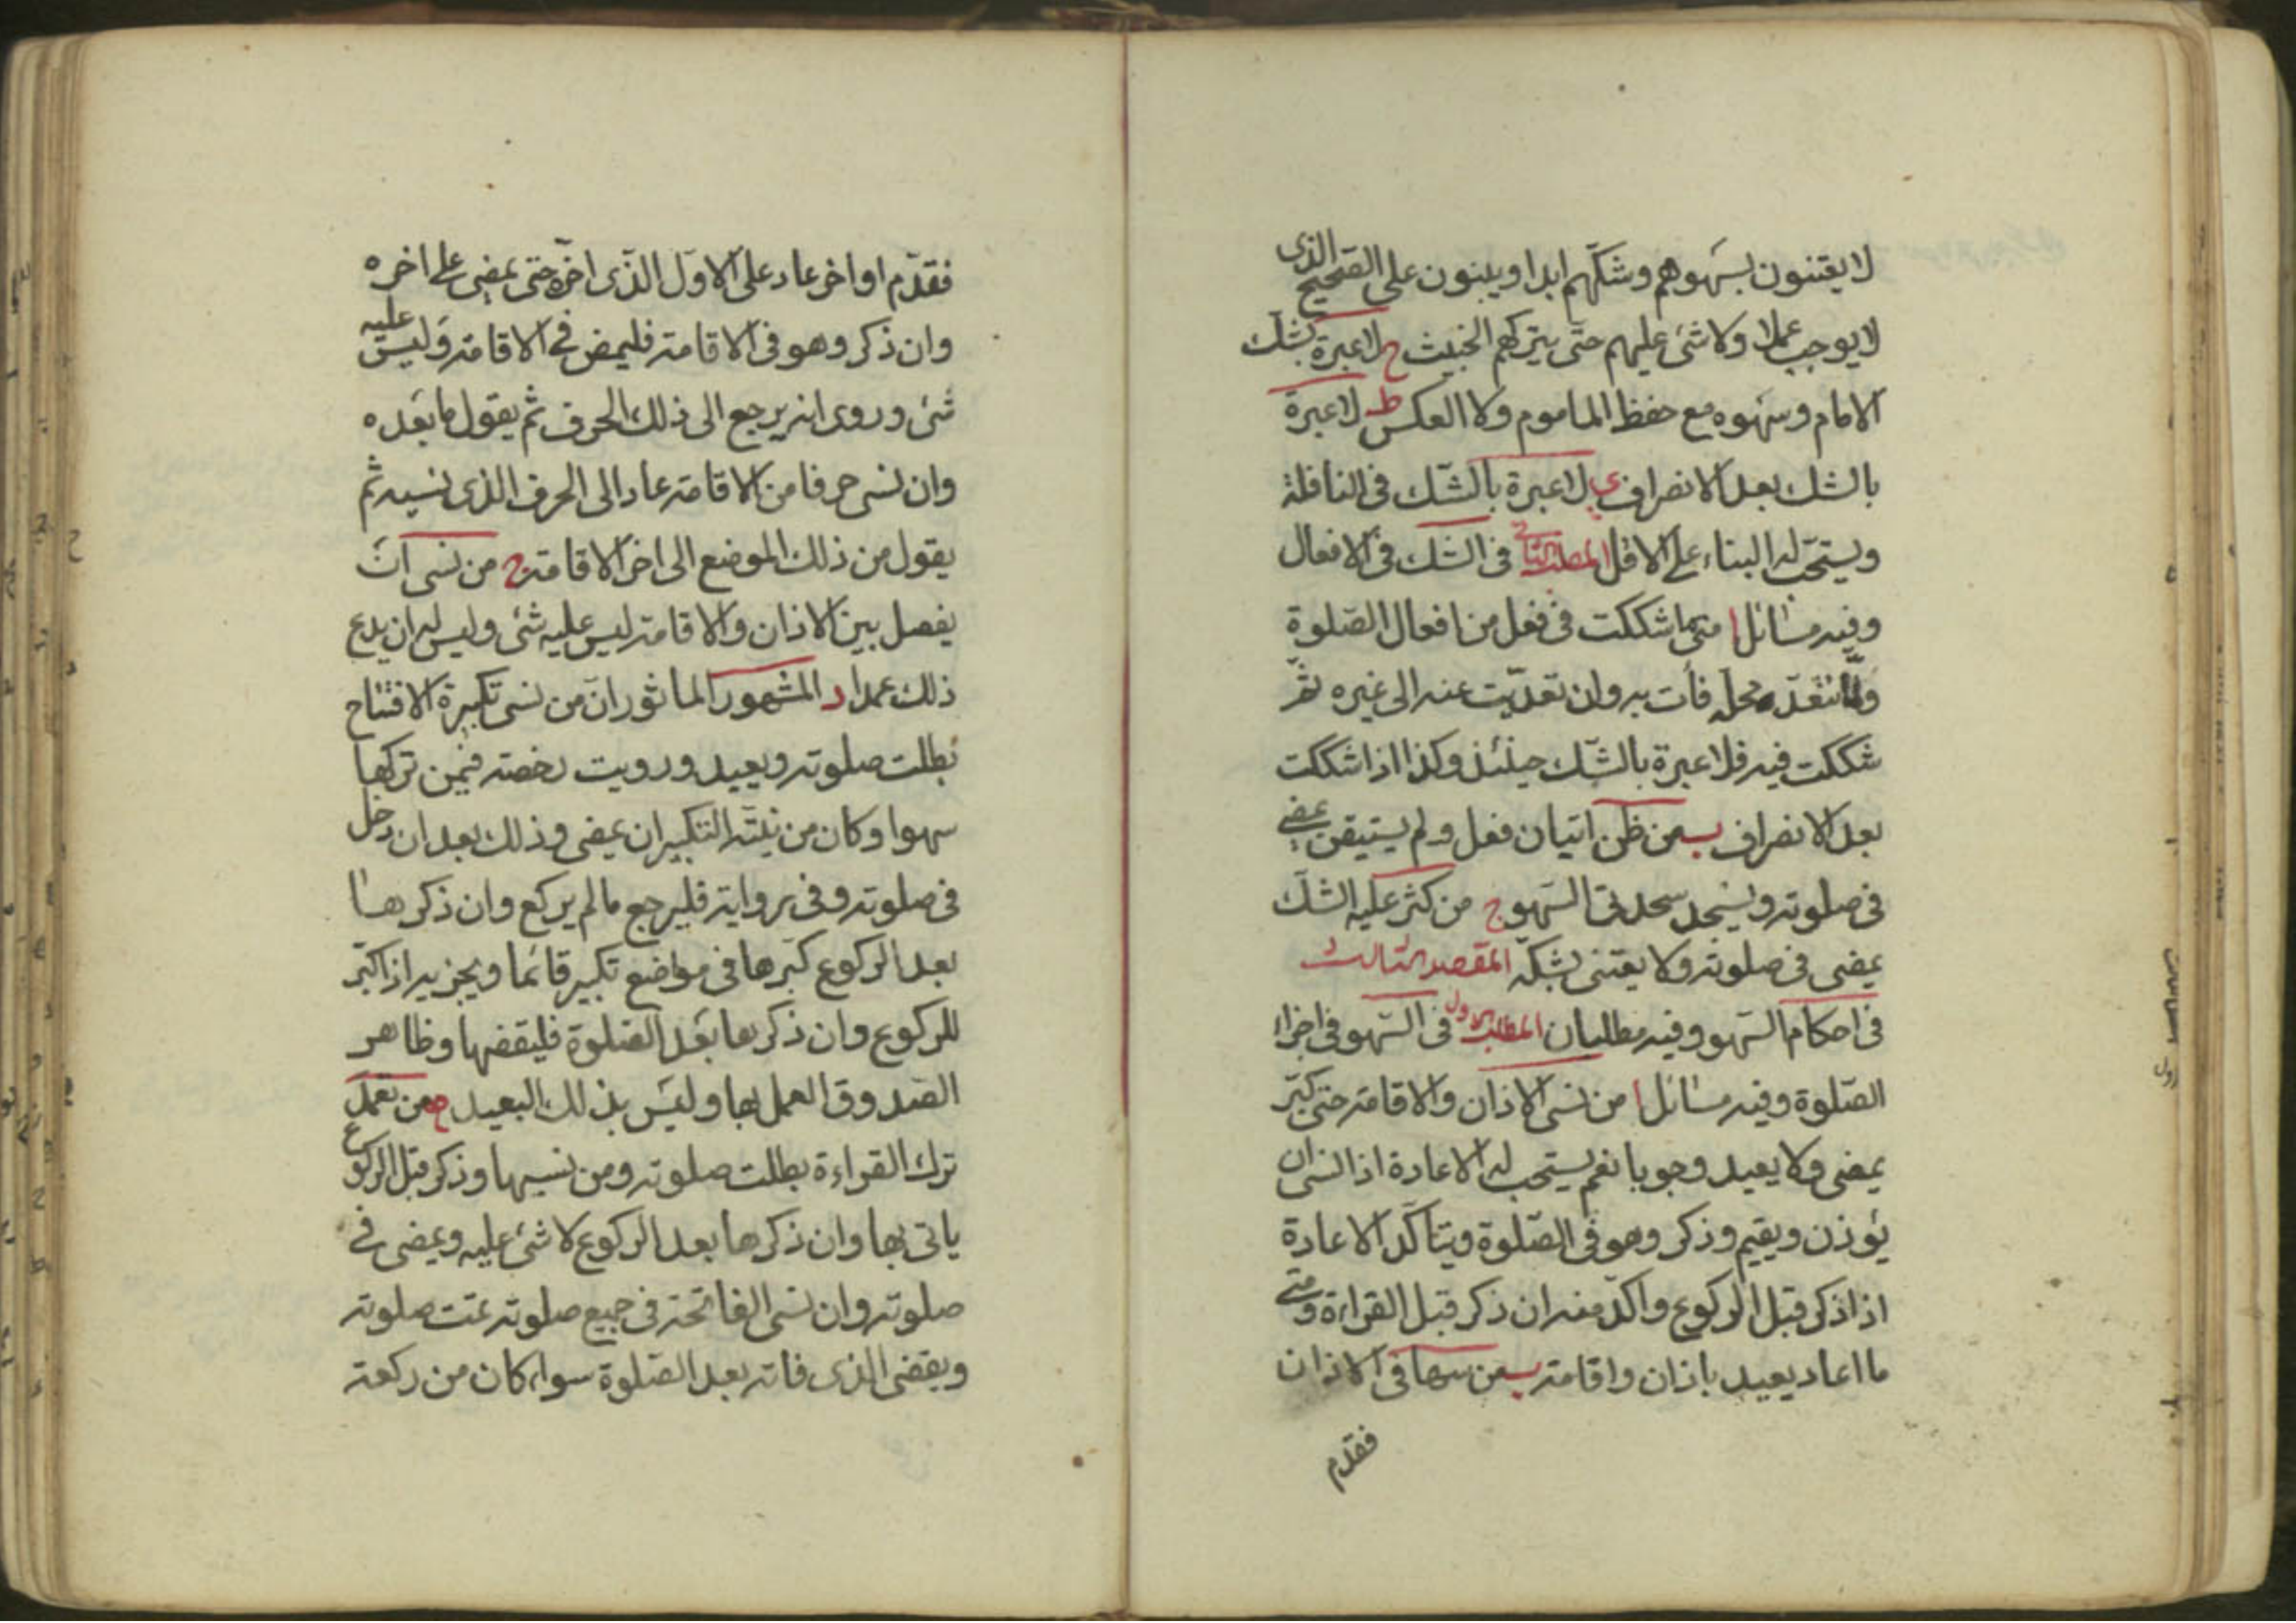 لا يعتنون بسهوهم وشكّهم ابدا ويبنون على الصّحيح الذى
لا يوجب عملا ولا شئ عليهم حتى يتركهم الخبيث ح لا عبرة بشك
الامام وسهوه مع حفظ الماموم ولا العكس ط لا عبرة
بالشك بعد الانصراف ى لا عبرة بالشّك فى النافلة
ويستحبّ له البناء على الاقل المطلب الثانى فى الشك فى الافعال
وفيه مسائل ا متى ما شككت فى فعل من افعال الصّلوة
ولمّا تتعدّ محله فأت به وان تعدّيت عنه الى غيره ثمّ
شككت فيه فلا عبرة بالشّك حينئذ وكذا اذا شككت
بعد الانصراف ب من ظن اتيان فعل ولم يستيقن يمضى
فى صلوته ويسجد سجدتى السّهو ج من كثر عليه الشكّ
يمضى فى صلوته ولا يعتنى بشكّه المقصد الثالث
فى احكام السّهو وفيه مطلبان المطلب الاول فى السّهو فى اجزاء
الصّلوة وفيه مسائل ا من نسى الاذان والاقامة حتى كبّر
يمضى ولا يعيد وجوبا نعم يستحب له الاعادة اذا نسى ان
يؤذن ويقيم وذكر وهو فى الصّلوة ويتأكّد الاعادة
اذا ذكر قبل الركوع واكدّ منه ان ذكر قبل القراءة ومتى
ما اعاد يعيد باذان واقامة ب من سها فى الاذان
فقدم
فقدّم او اخر عاد على الاوّل الذّى اخّره حتى يمضى على اخره
وان ذكر وهو فى الاقامة فليمض فى الاقامة وليس عليه
شئ وروى انه يرجع الى ذلك الحرف ثم يقول ما بعده
وان نسى حرفا من الاقامة عاد الى الحرف الذى نسيه ثم
يقول من ذلك الموضع الى اخر الاقامة ج من نسى ان
يفصل بين الاذان والاقامة ليس عليه شئ وليس له ان يدع
ذلك عمدا د المشهور الماثور انّ من نسى تكبيرة الافتتاح
بطلت صلوته ويعيد ورويت رخصة فيمن تركها
سهوا وكان من نيّته التكبير ان يمضى وذلك بعد ان دخل
فى صلوته وفى رواية فليرجع ما لم يركع وان ذكرها
بعد الركوع كبّرها فى مواضع تكبير قائما ويجزيه اذا كبّر
للركوع وان ذكرها بعد الصّلوة فليقضها وظاهر
الصّدوق العمل بها وليس بذلك البعيد ه من تعمد
ترك القراءة بطلت صلوته ومن نسيها وذكر قبل الركوع
ياتى بها وان ذكرها بعد الركوع لا شئ عليه ويمضى فى
صلوته وان نسى الفاتحة فى جميع صلوته تمّت صلوته
ويقضى الذى فاته بعد الصّلوة سواء كان من ركعة